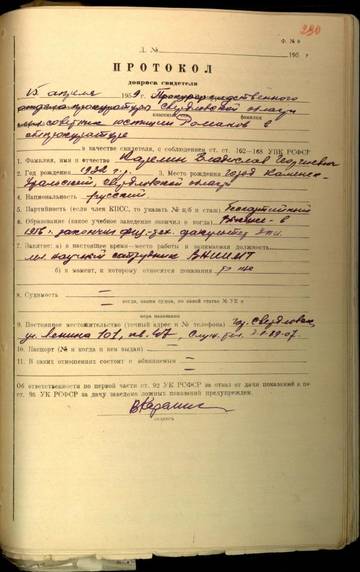 Ф. № 8
280
Д. №
195 г
ПРОТОКОЛ
допроса свидетеля
15 апреля 1959 г. Прокурор следственного
отдела прокуратуры Свердловской области
классный фамилия
советник юстиции Романов в
облпрокуратуре
в качестве свидетеля, с соблюдением ст. ст. 162—168 УПК РСФСР
1. Фамилия, имя и отчество Карелин Владислав Георгиевич
2. Год рождения 1932 г.р. 3. Место рождения город Каменск-
Уральский, Свердловской области
4. Национальность русский
5. Партийность (если член КПСС, то указать № п/б и стаж) беспартийный
6. Образование (какое учебное заведение окончил и когда) высшее - в
окончил физ-тех. факультет УПИ
7. Занятие: а) в настоящее время—место работы и занимаемая должность
научный сотрудник
б) в момент, к которому относится показания то же
8. Судимость —
когда, каким судом, по какой статье УК и
мера наказания
9. Постоянное местожительство (точный адрес и № телефона) гор. Свердловск,
ул. Ленина 101, кв. Служ. тел.
10. Паспорт (№ и когда и кем выдан)
11. В каких отношениях состоит с обвиняемым —
Об ответственности по первой части ст. 92 УК РСФСР за отказ от дачи показаний и по
ст. 95 УК РСФСР за дачу заведомо ложных показаний предупрежден.
ВКарелин
подпись